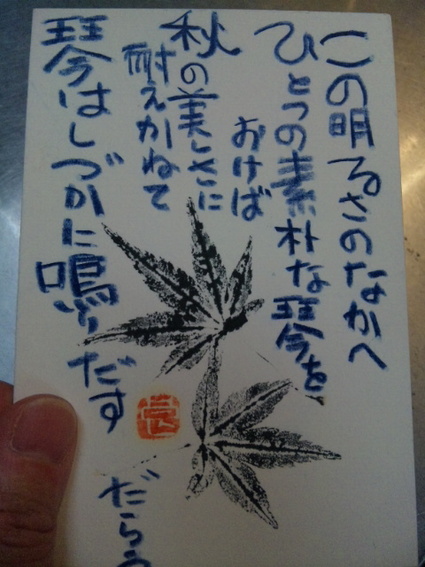 この明るさのなかへ
ひとつの素朴な琴を
おけば
秋の美しさに
耐えかねて
琴はしづかに鳴りだす
だらう